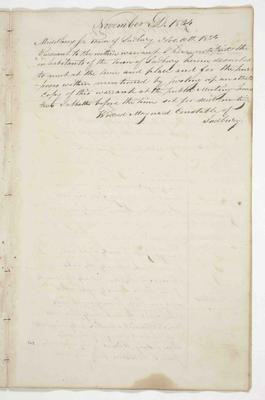 November 1834
Middlesex Ss Town of Sudbury Nov. 1834
Pursuant to the within warrant I have notified the
inhabitants of the Town of Sudbury herein described
to meet at the time and place and for the pur-
poses within mentioned by posting up an attested
Copy of this warrant at the public Meeting house
two Sabbaths before the time set for said meeting
Maynard Constable of
Sudbury